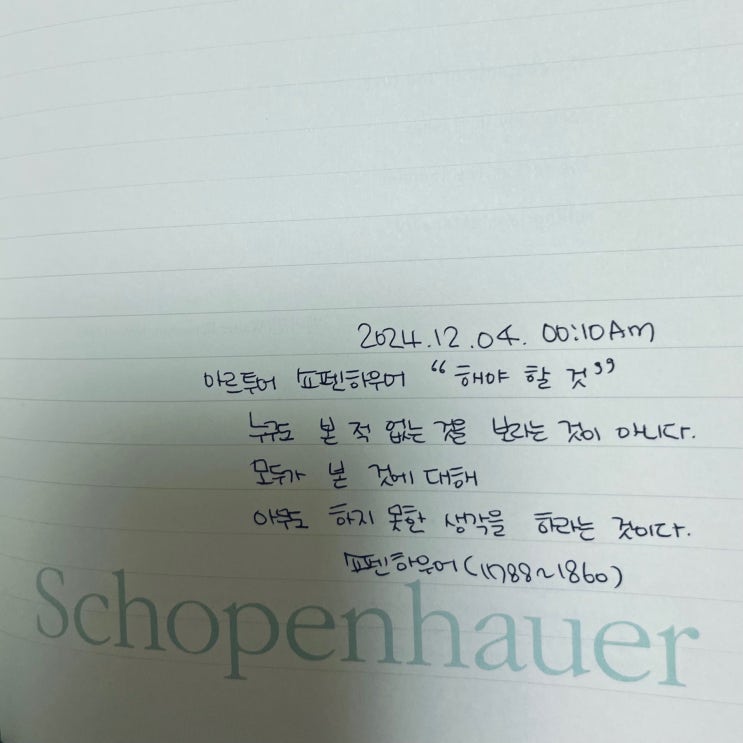 2024.12.04. 00:10AM
아르투어 쇼펜하우어 “해야 할 것”
누구도 본 적 없는 것을 보라는 것이 아니다.
모두가 본 것에 대해
아무도 하지 못한 생각을 하라는 것이다.
쇼펜하우어(1788~1860)
Schopenhauer